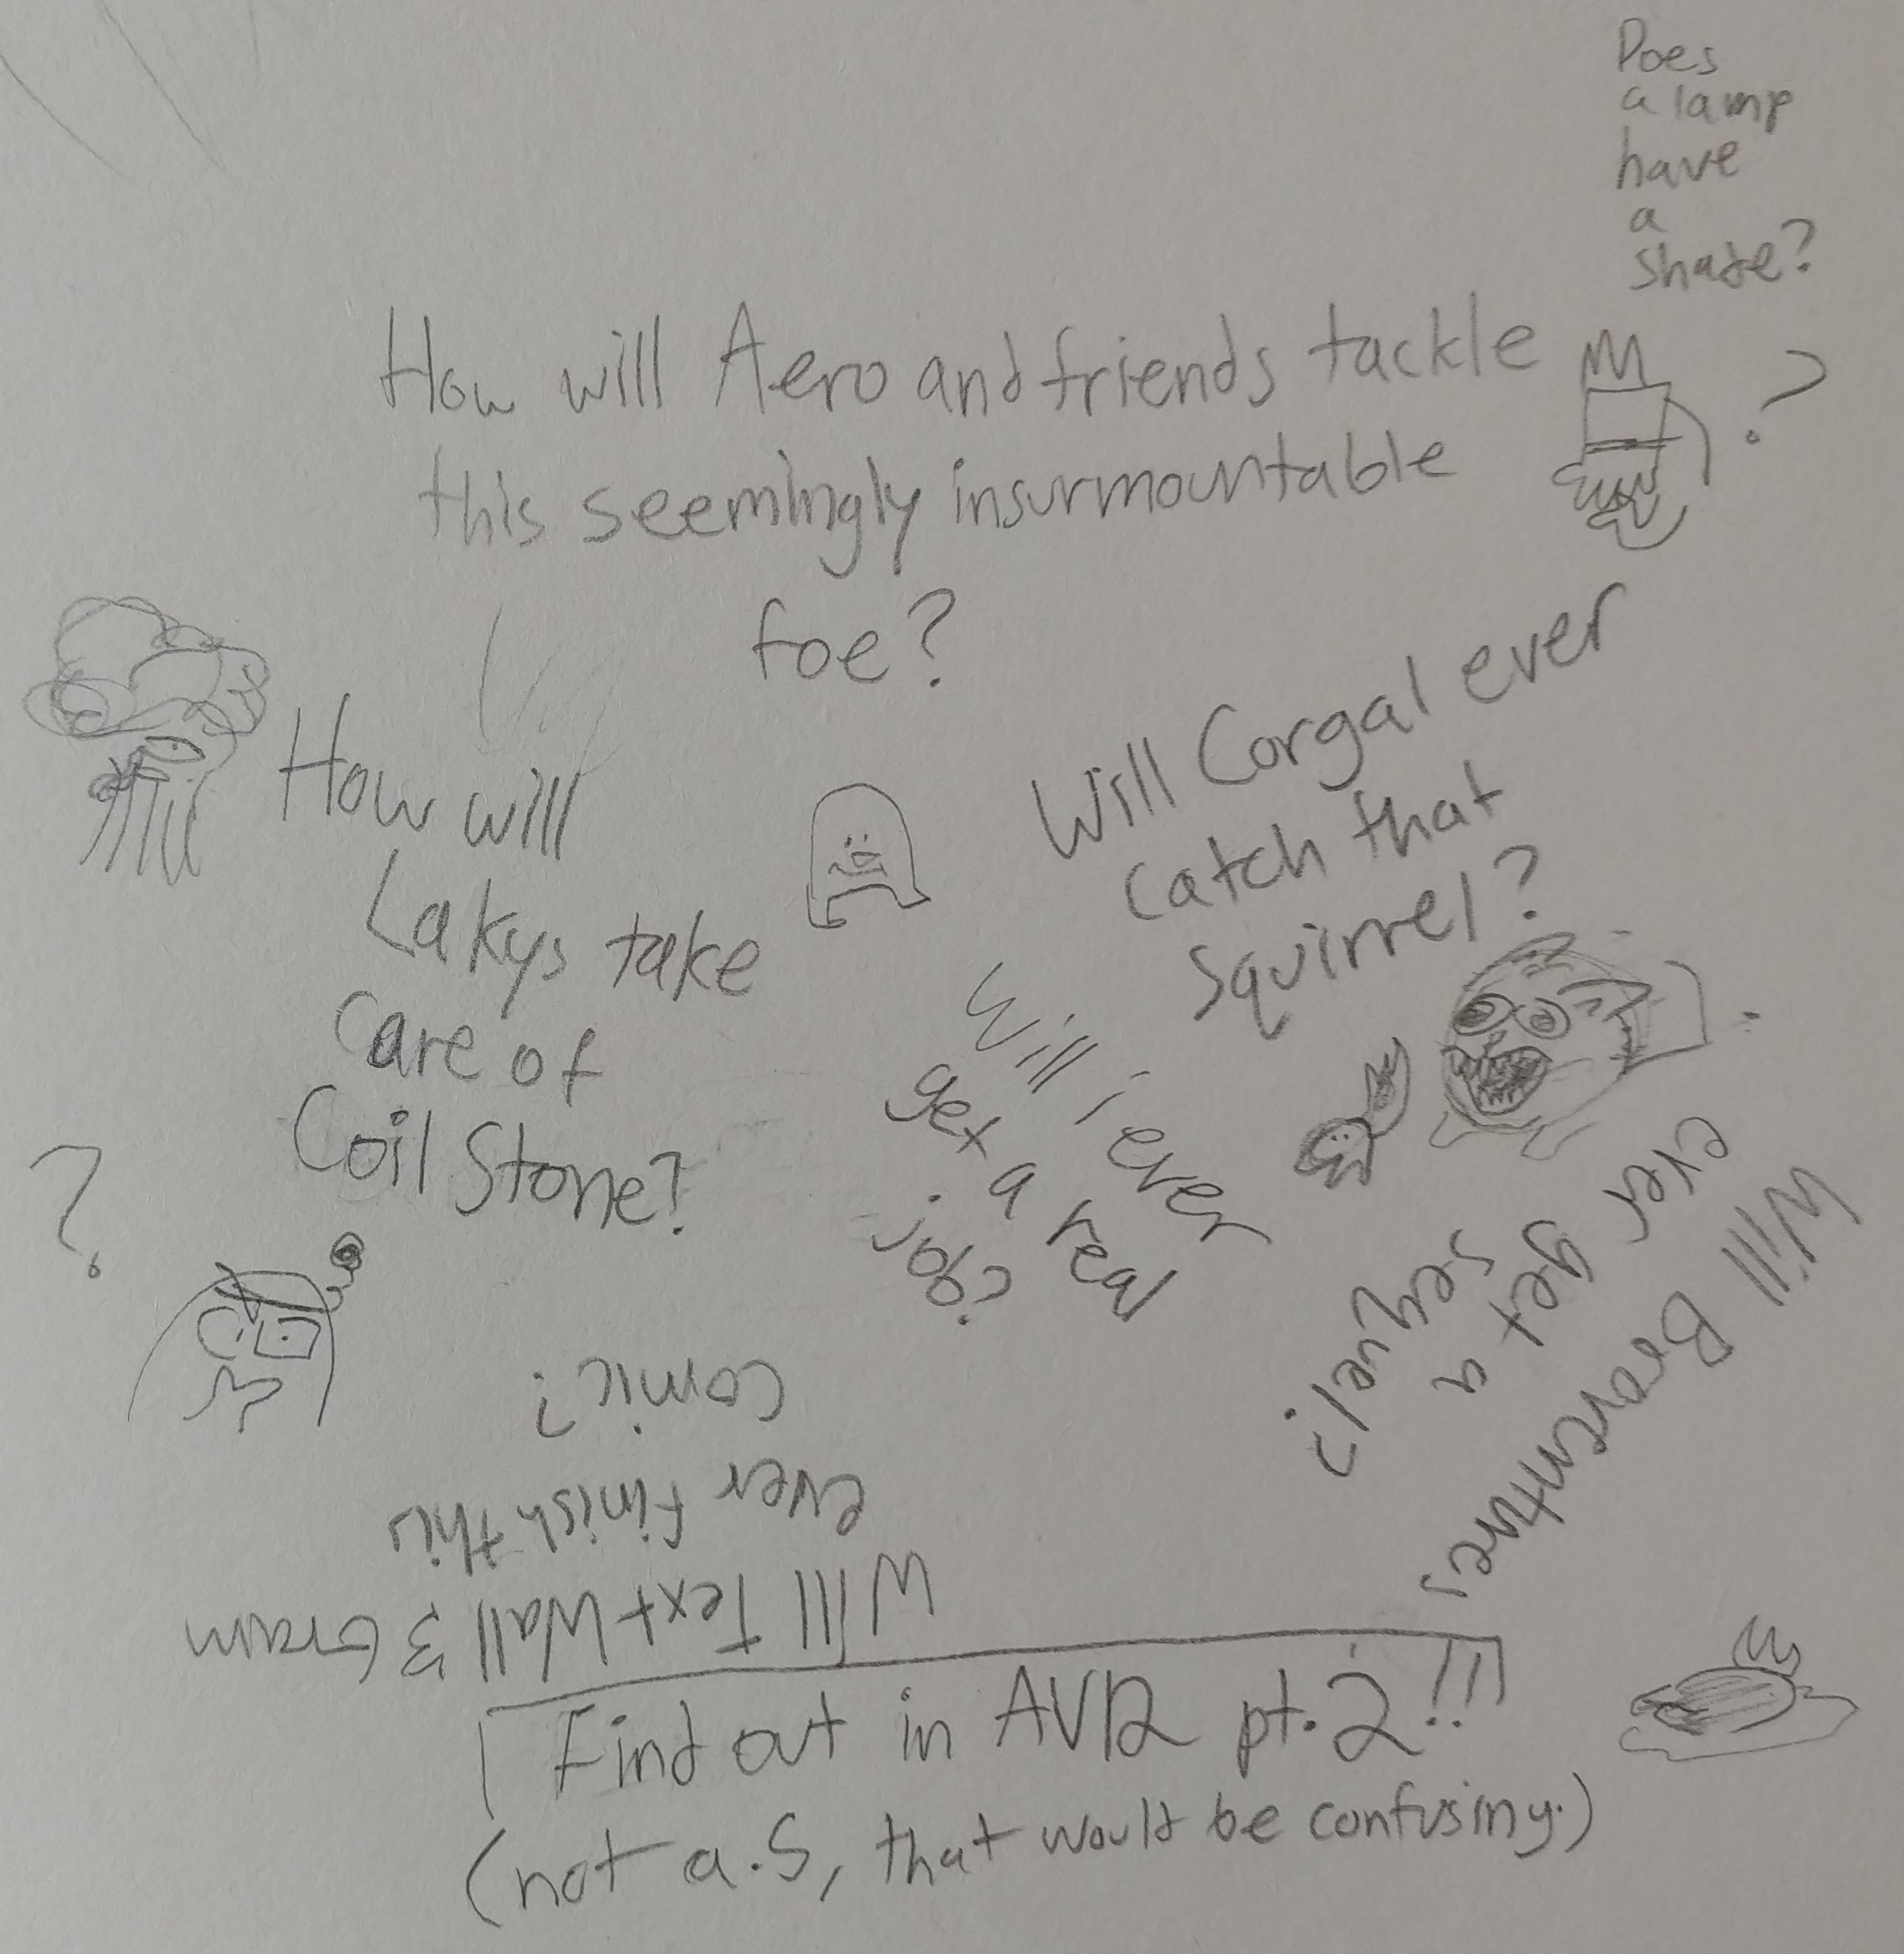 Does
a lamp
have
a
shade?
How will Aero and friends tackle
this seemingly insurmountable
foe?
?
How will
Lakys take
care of
Coil Stone?
?
Will Corgal ever
catch that
squirrel?
Will i ever
get a real
job?
Will Breventure
ever get a
sequel?
Will Text Wall & Graim
ever finish this
comic?
Find out in AVR pt. 2!!!
(not a.S, that would be confusing.)